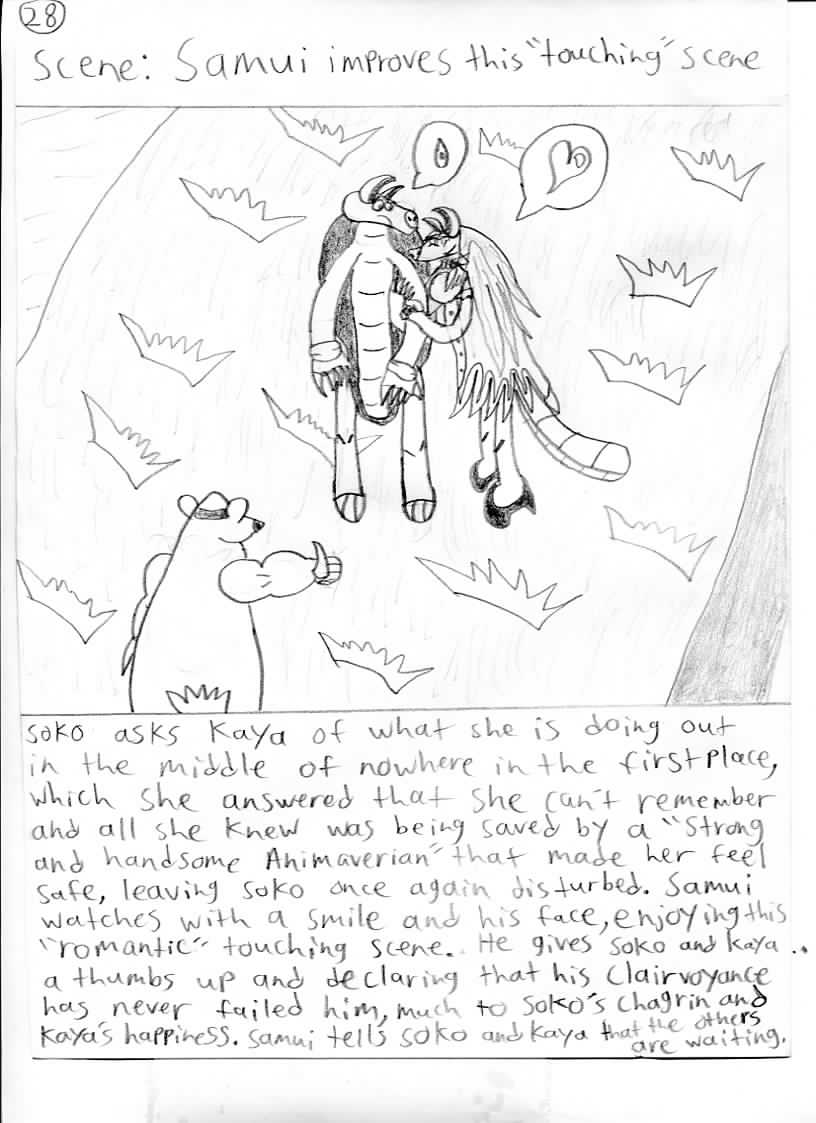 28
Scene: Samui improves this "touching" scene
Soko asks Kaya of what she is doing out
in the middle of nowhere in the first place,
which she answered that she can't remember
and all she knew was being saved by a "Strong
and handsome Animaverian" that made her feel
safe, leaving Soko once again disturbed. Samui
watches with a smile and his face, enjoying this
"romantic" touching scene.. He gives Soko and Kaya ..
a thumbs up and declaring that his Clairvoyance
has never failed him, much to Soko's chagrin and
Kaya's happiness. Samui tells Soko and Kaya that the others
are waiting.